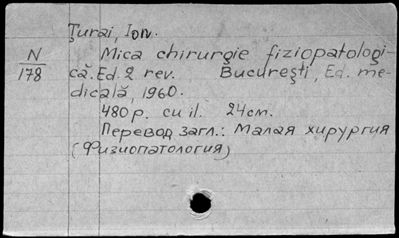 Ţurai, Ion.
N
178
Mica chirurgie fiziopatologi-
că. Ed. 2 rev. Bucureşti, Ed. me-
dicală, 1960.
480 p. cu il. 24 cm.
Перевод загл.: Малая хирургия
(Физиопатология)